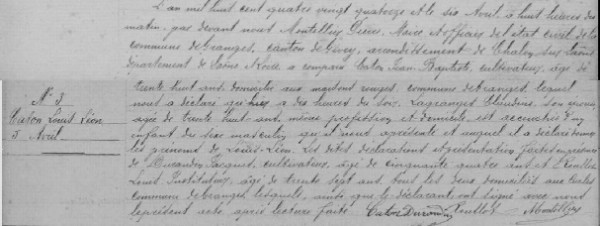 L'an mil huit cent quatre vingt quatorze et le six Avril, à huit heures du
matin, par devant nous Montellier Pierre, Maire et officier de l'état civil de la
commune de Granges, canton de Givry, arrondissement de Chalon sur Saône
département de Saône & Loire a comparu Caton Jean Baptiste, cultivateur, âgé de
trente huit ans, domicilié aux commune de Granges, lequel
nous a déclaré qu'hier, à dix heures du soir, Lagrange Claudine, son épouse,
âgée de trente huit ans, même profession et domicile est accouchée d'un
enfant du sexe masculin qu'il nous a présenté et auquel il a déclaré donner
les prénoms de Louis-Léon. Les dites déclaration et présentation faites en présence
de Jacques, cultivateur, âgé de cinquante quatre ans et
Louis Instituteur, âgé de trente sept ans, tous les deux domiciliés aux
commune de Granges, lesquels, ainsi que le déclarant ont signé avec nous
le présent acte, après lecture faite
Caton
N° 3
Caton Louis Léon
5 Avril